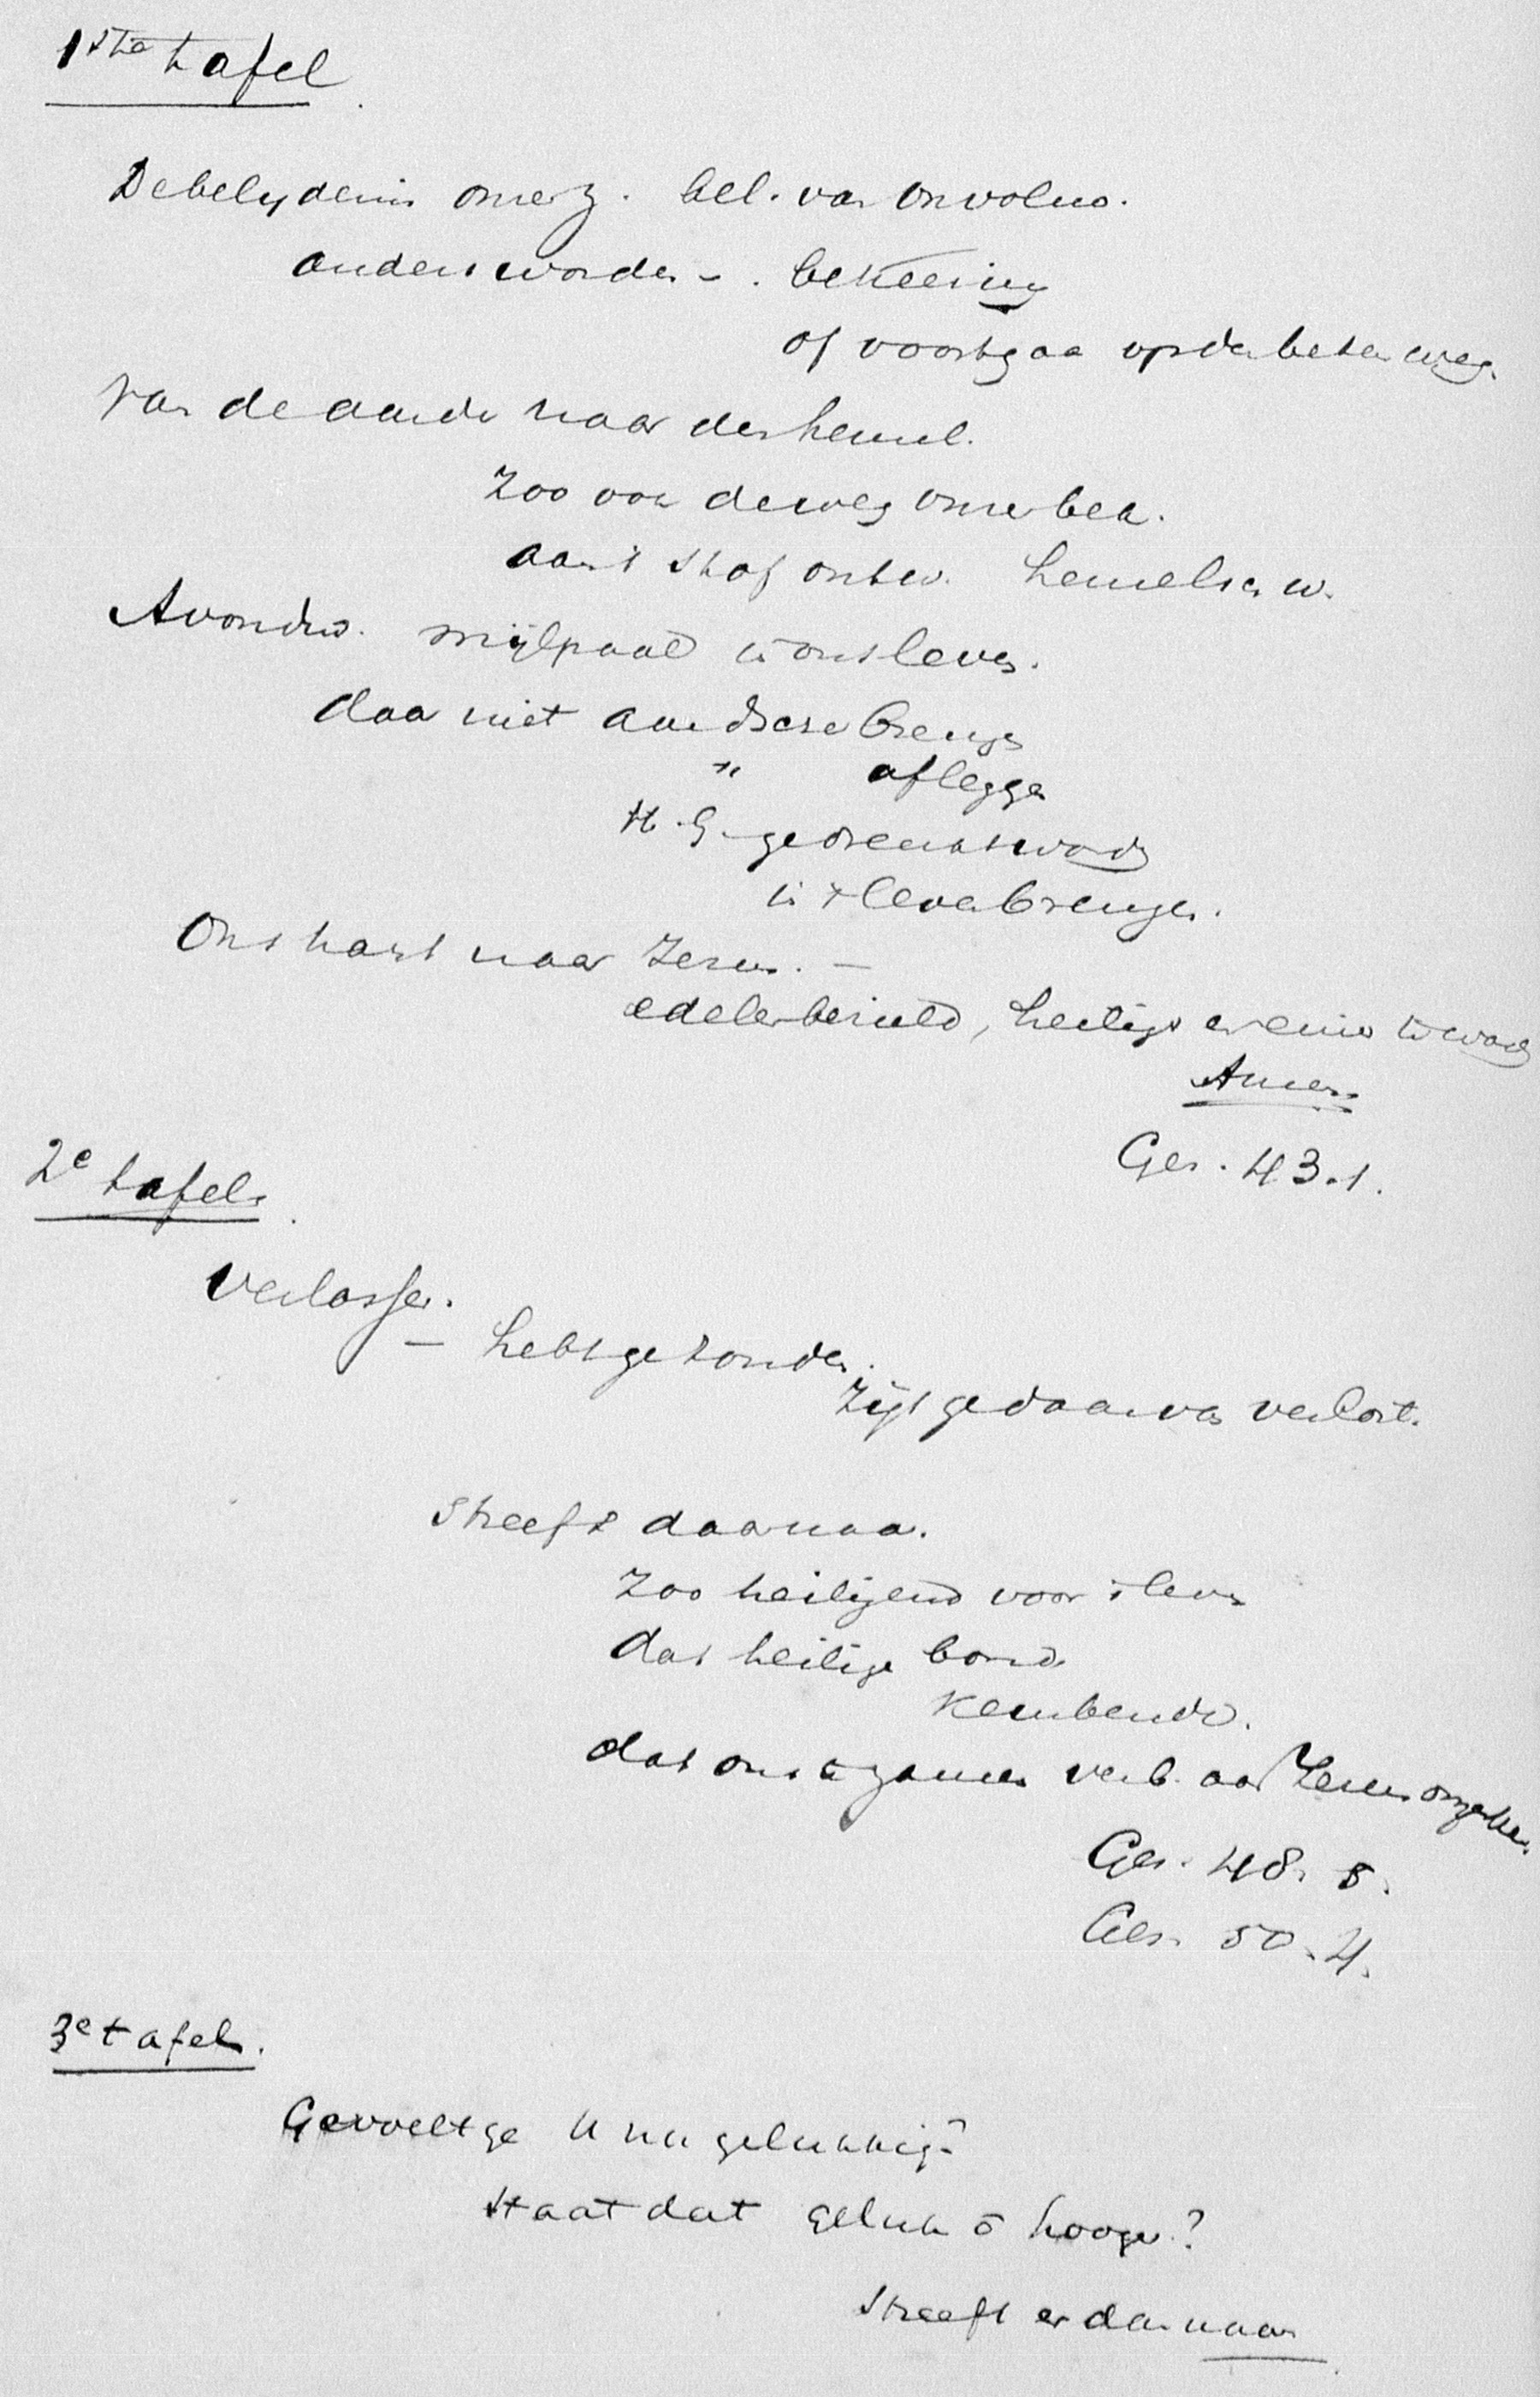 1ste tafel
De belydenis onzer z. bel. van onvolm.
anders worden - . bekeering
of voortgaa op den beteren weg.
Van de aarde naar den hemel.
Zoo ook de weg onzer bek.
aan 't stof ontw. hemelsch w.
Avondm. mijlpaal in ons leven.
daar niet aan deze brengen
" afleggen
H. G. gedrenkt worden
in 't leven brengen.
Ons hart naar Jezus. —
edeler bezield, heiliger en reiner te worden
Amen
Gez. 43.1.
2e tafel.
Verlosser.
— hebt ge zonden.
Zijt ge daarvan verlost.
Streeft daarnaa.
Zoo heiligend voor 't leven
dat heilige bond.
Kenbende.
dat ons te zamen verb. aan Jezus
Gez. 48. 8.
Gez. 50. 4.
3e tafel.
Gevoelt ge U nu gelukkig?
Staat dat geluk o hooge?
Streeft er dan naar